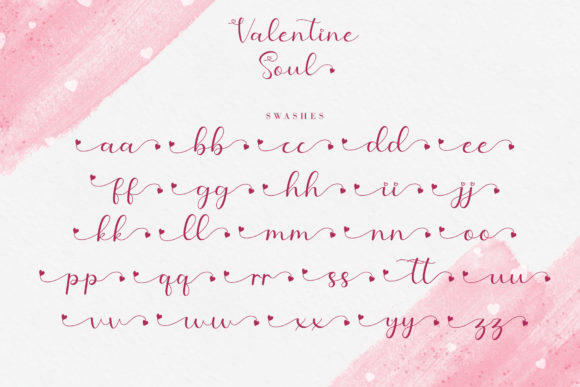 Valentine
Soul
SWASHES
aa bb cc dd ee
ff gg hh ii jj
kk ll mm nn oo
pp qq rr ss tt uu
vv ww xx yy zz